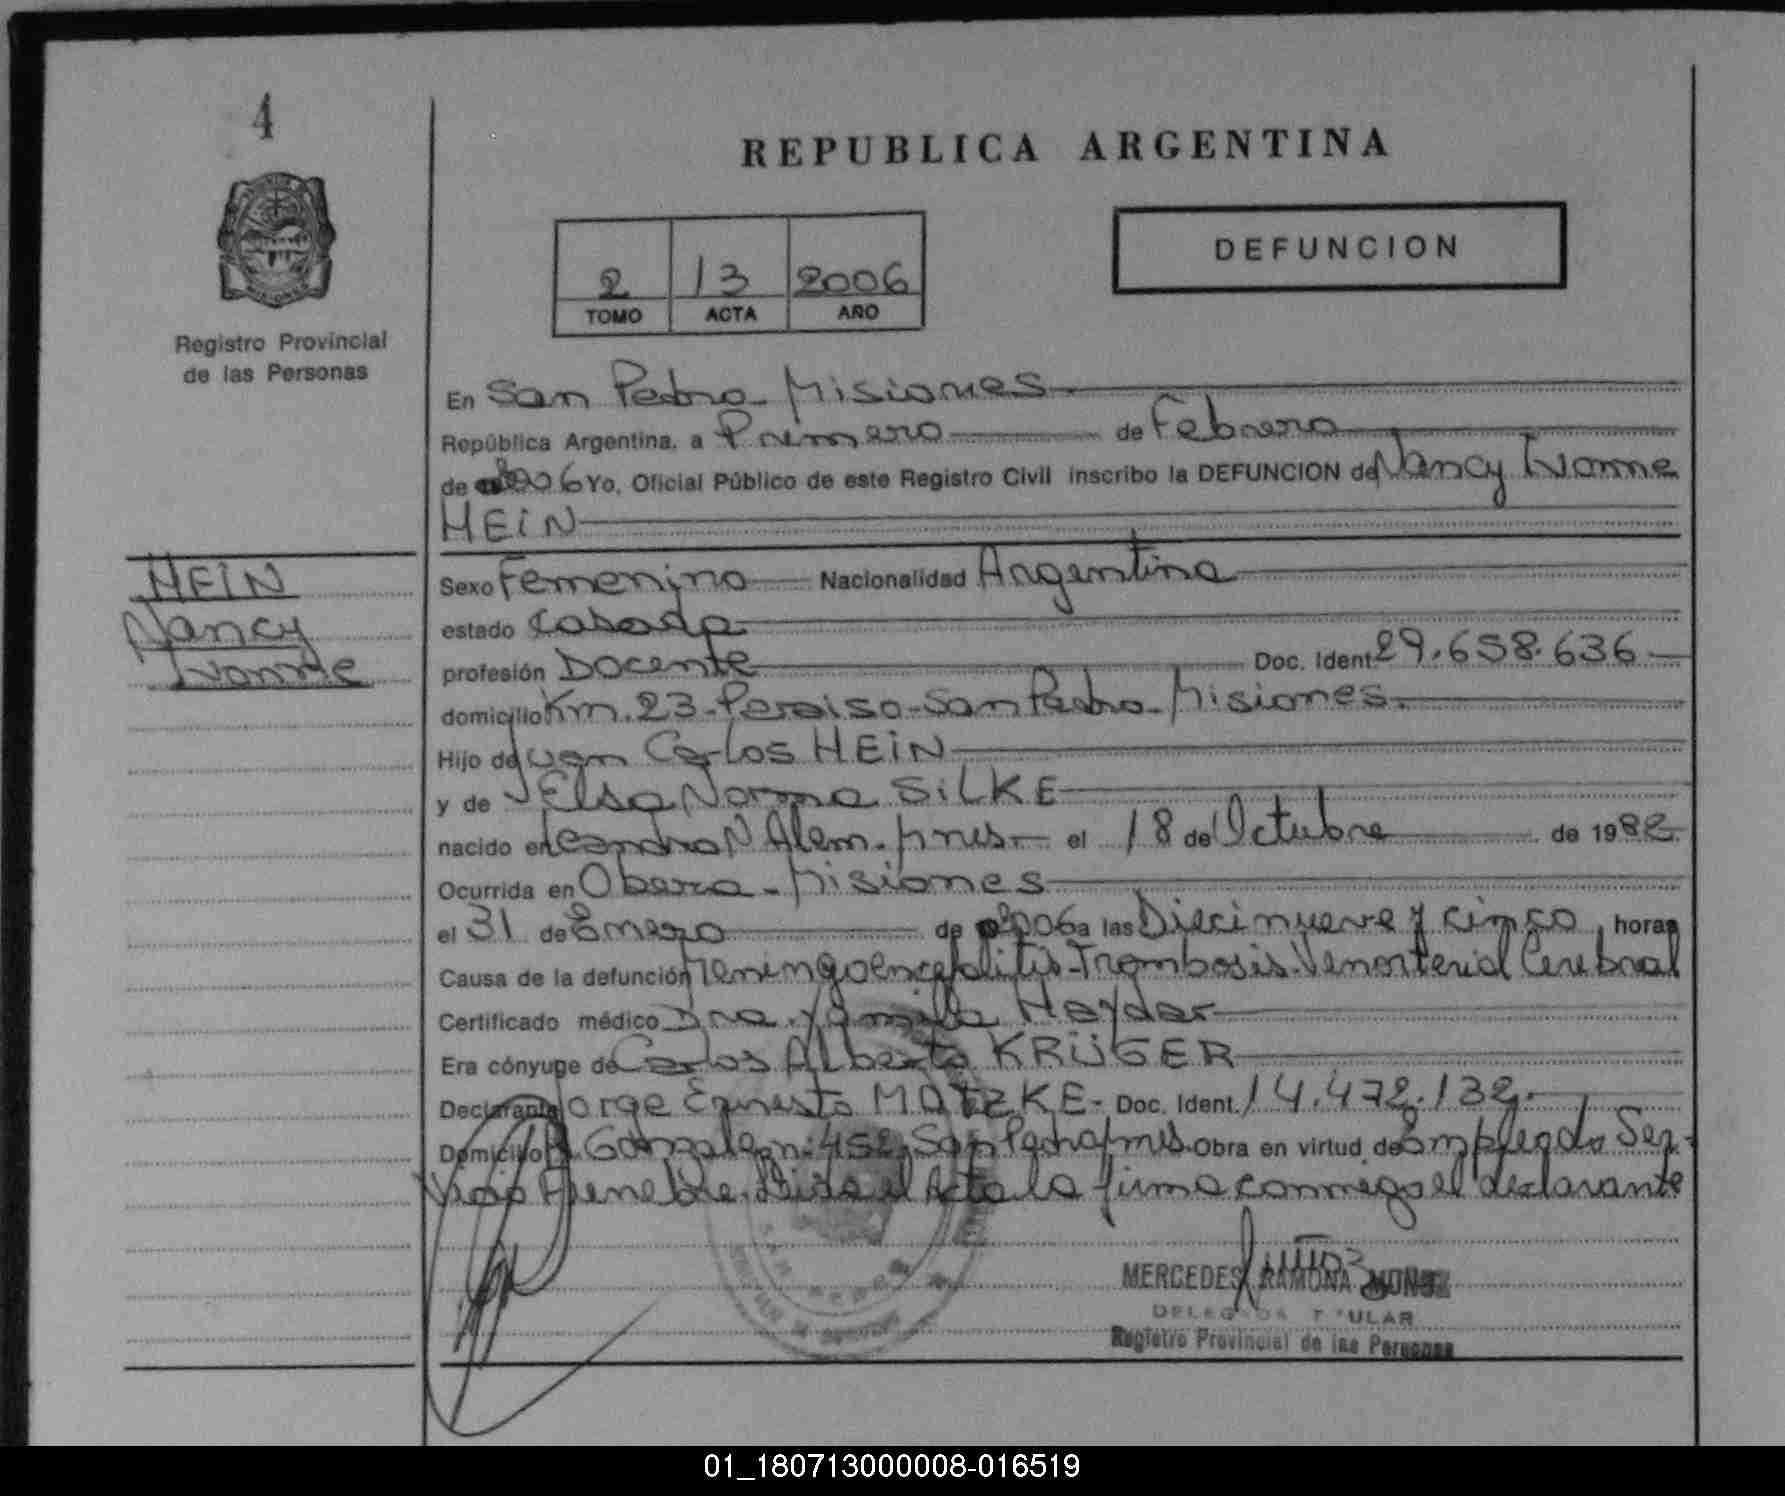 4
REPUBLICA ARGENTINA
DEFUNCION
2 13 2006
TOMO ACTA AÑO
Registro Provincial
de las Personas
En San Pedro Misiones
República Argentina, a Primero de Febrero
de 2006 Yo, Oficial Público de este Registro Civil inscribo la DEFUNCION de Nancy Ivonne
HEiN
HEiN
Nancy
Ivonne
Sexo Femenino Nacionalidad Argentina
estado Casada
profesión Docente Doc. Ident. 29.658.636
domicilio Km. 23-Paraiso-San Pedro-Misiones.
Hijo de Juan Carlos HEiN
y de Elsa Norma SiLKE
nacido en Leandro N Alem. Mnes. el 18 de Octubre de 1982
Ocurrida en Obera-Misiones
el 31 de Enero de 2006 a las Diecinueve y cinco horas
Causa de la defunción Meningoencefalitis-Trombosis Cerebral
Certificado médico Dra. Yamila Haydar
Era cónyuge de Carlos Alberto KRÜGER
Declarante Jorge Ernesto MATZKE- Doc. Ident. 14.472.132.
Domicilio Gonzalez nº 452 San Pedro Mnes. Obra en virtud de Empleado Ser-
vicio Funebre. Leida el Acta la firma conmigo el declarante
MERCEDES RAMONA MUÑOZ
DELEGADA TITULAR
Registro Provincial de las Personas
01_180713000008-016519